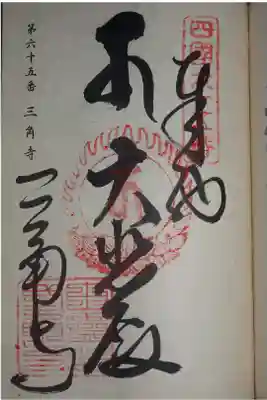 四国六十五番
奉納
大悲殿
三角寺
第六十五番 三角寺